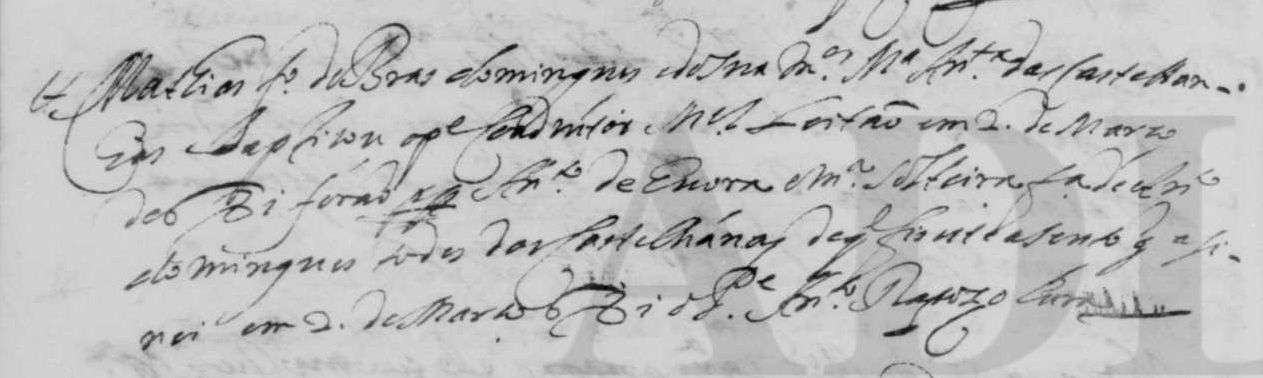 Mathias fo. de Bras domingues e de sua mer. Ma Anta. das Castelhan-
baptizou o pe Coadiutor Mel Leitão em 2. de Março
de forão pp Anto. de Euora e Ma. solteira fa de Anto
domingues todos das Castelhánas de q fis este asento q asi-
nei em 2. de Março o Pe. Anto. Rapozo Cura
ADL